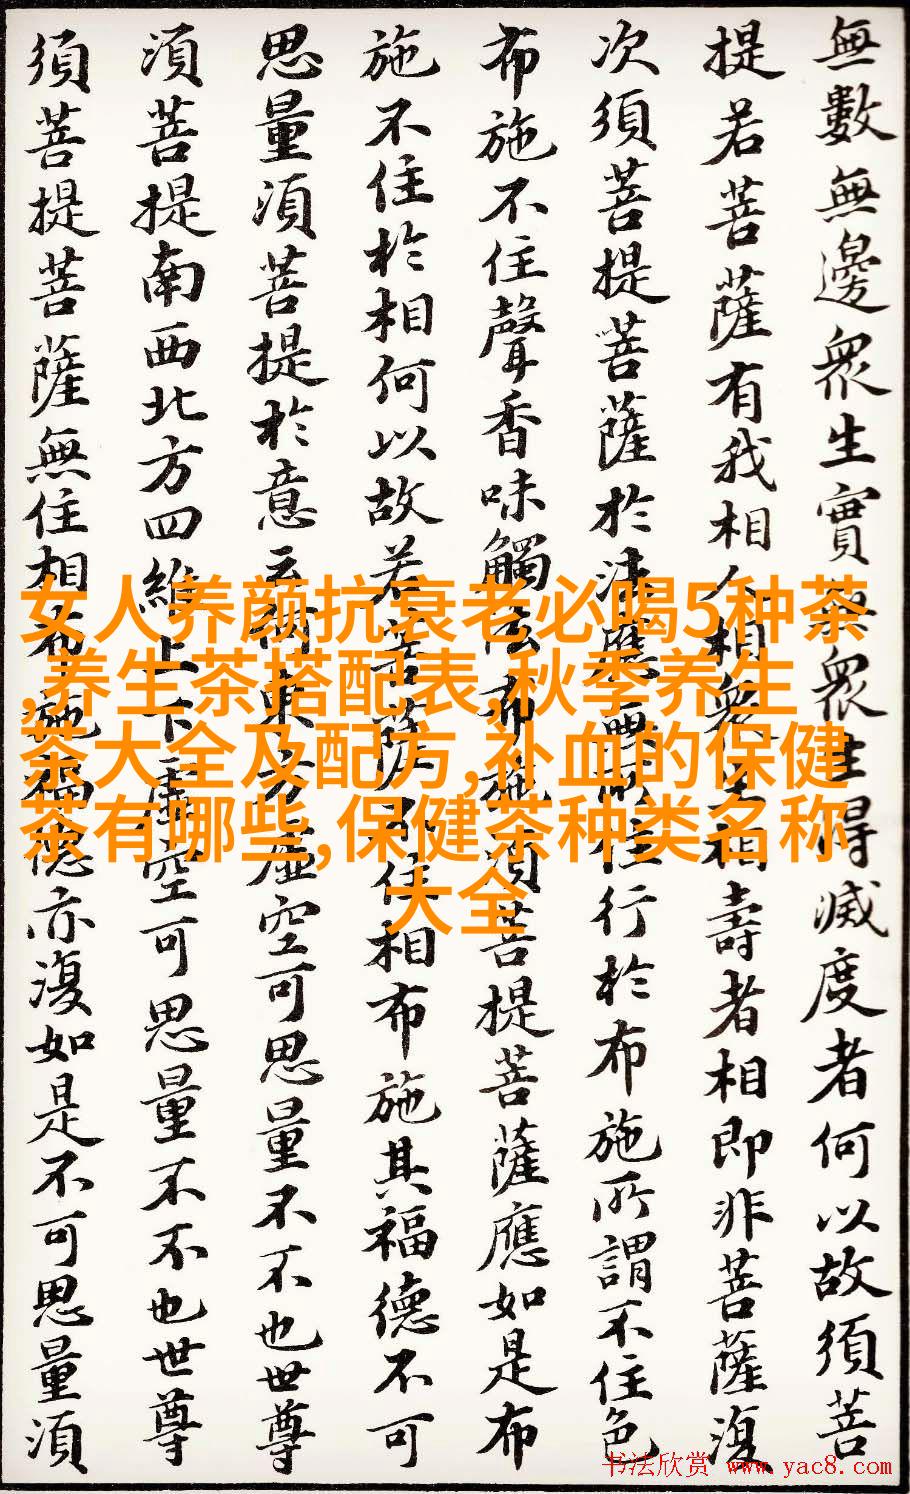 無數無邊衆生實無衆生得滅度者何以故須菩
提若菩薩有我相人相衆生相壽者相即非菩薩復
次須菩提菩薩於法應無所住行於布施所謂不住色
布施不住聲香味觸法布施須菩提菩薩應如是布
施不住於相何以故若菩薩不住相布施其福德不可
思量須菩提於意云何東方虛空可思量不不也世尊
須菩提南西北方四維上下虛空可思量不不也世尊
須菩提菩薩無住相布施福德亦復如是不可思量須
女人养颜抗衰老必喝5种茶
,养生茶搭配表,秋季养生
茶大全及配方,补血的保健
茶有哪些,保健茶种类名称
大全
书法欣赏 www.yac8.com